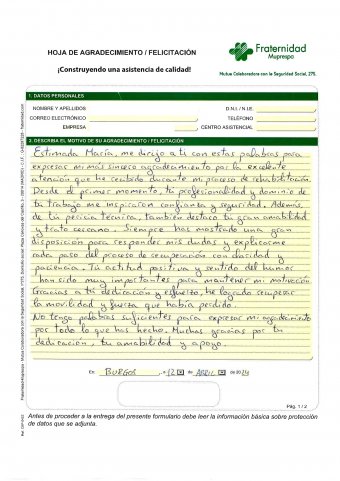 HOJA DE AGRADECIMIENTO / FELICITACIÓN
¡Construyendo una asistencia de calidad!
Fraternidad
Muprespa
Mutua Colaboradora con la Seguridad Social, 275.
1. DATOS PERSONALES
NOMBRE Y APELLIDOS
D.N.I. / N.I.E.
CORREO ELECTRÓNICO
TELÉFONO
EMPRESA
CENTRO ASISTENCIAL
2. DESCRIBA EL MOTIVO DE SU AGRADECIMIENTO / FELICITACIÓN
Estimada María, me dirijo a ti con estas palabras para
expresar mi más sincero agradecimiento por la excelente
atención que he recibido durante mi proceso de rehabilitación.
Desde el primer momento, tu profesionalidad y dominio de
tu trabajo me inspiraron confianza y seguridad. Además,
de tu pericia técnica, también destaco tu gran amabilidad
y trato cercano. Siempre has mostrado una gran
disposición para responder mis dudas y explicarme
cada paso del proceso de recuperación con claridad y
paciencia. Tu actitud positiva y sentido del humor
han sido muy importantes para mantener mi motivación.
Gracias a tu dedicación y esfuerzo, he logrado recuperar
la movilidad y fuerza que había perdido.
No tengo palabras suficientes para expresar mi agradecimiento
por todo lo que has hecho. Muchas gracias por tu
dedicación, tu amabilidad y apoyo.
En BURGOS, a 12 de ABRIL de 2024
Pág. 1 / 2
Antes de proceder a la entrega del presente formulario debe leer la información básica sobre protección
de datos que se adjunta.